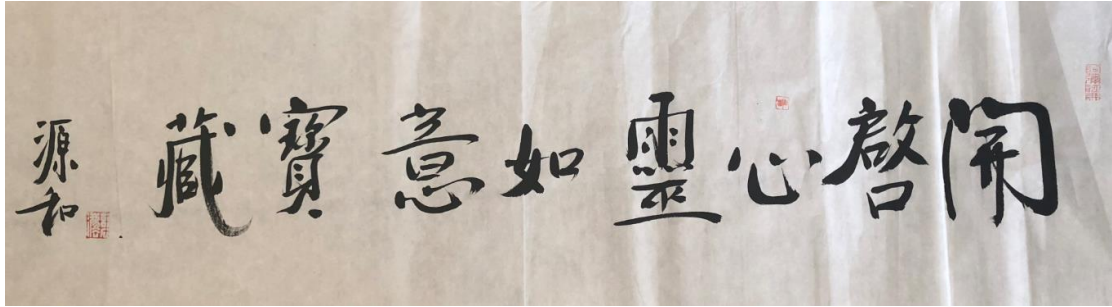 開啓心靈如意寶藏
源和